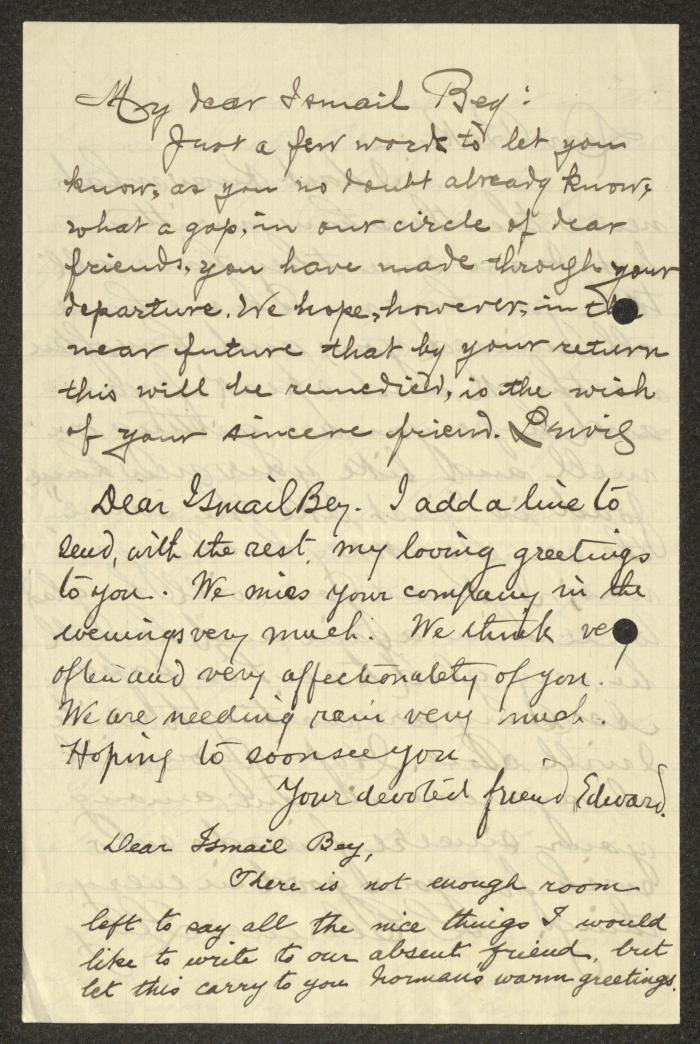 My dear Ismail Bey:
Just a few words to let you
know, as you no doubt already know,
what a gap, in our circle of dear
friends, you have made through your
departure. We hope, however, in the
near future that by your return
this will be remedied, is the wish
of your sincere friend. Lewis
Dear Ismail Bey. I add a line to
send, with the rest, my loving greetings
to you. We miss your company in the
evenings very much. We think very
often and very affectionately of you.
We are needing rain very much.
Hoping to soon see you
Your devoted friend, Edward.
Dear Ismail Bey,
There is not enough room
left to say all the nice things I would
like to write to our absent friend, but
let this carry to you Normans warm greetings.